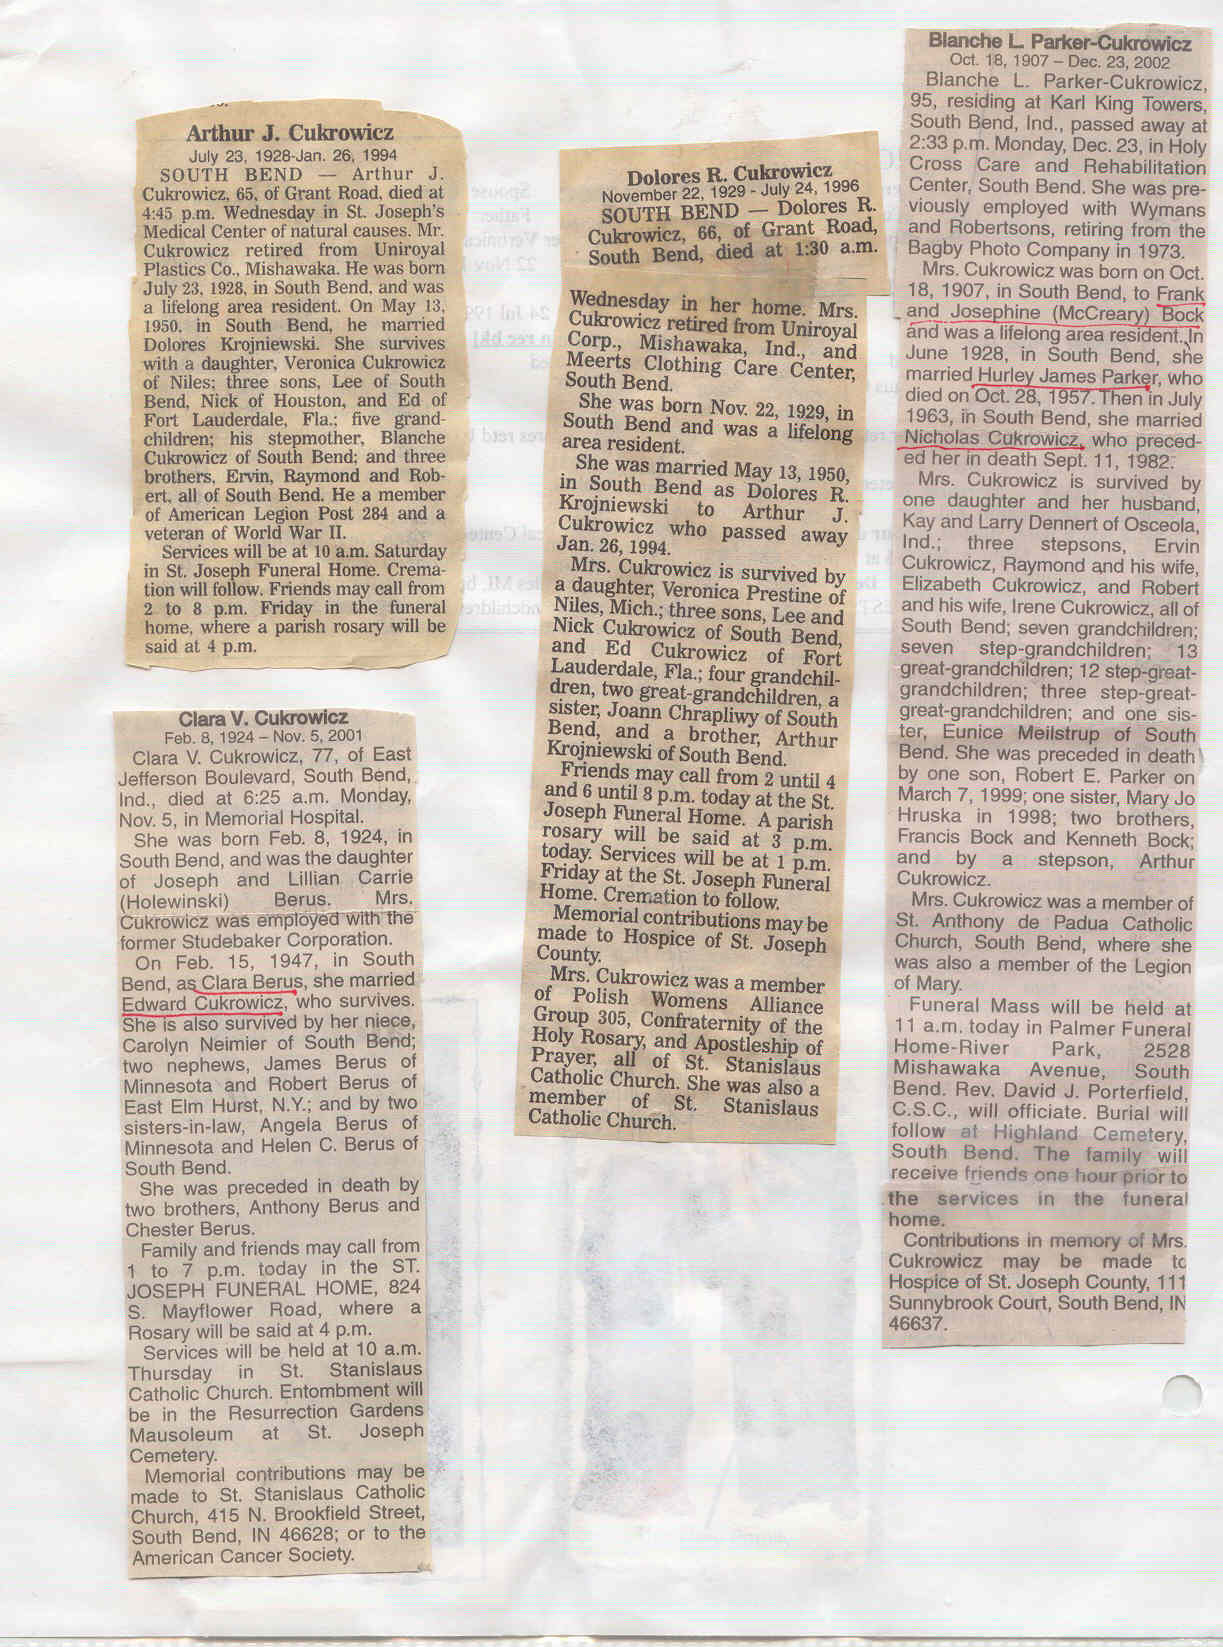 Arthur J. Cukrowicz
July 23, 1928-Jan. 26, 1994
SOUTH BEND — Arthur J.
Cukrowicz, 65, of Grant Road, died at
4:45 p.m. Wednesday in St. Joseph's
Medical Center of natural causes. Mr.
Cukrowicz retired from Uniroyal
Plastics Co., Mishawaka. He was born
July 23, 1928, in South Bend, and was
a lifelong area resident. On May 13,
1950, in South Bend, he married
Dolores Krojniewski. She survives
with a daughter, Veronica Cukrowicz
of Niles; three sons, Lee of South
Bend, Nick of Houston, and Ed of
Fort Lauderdale, Fla.; five grand-
children; his stepmother, Blanche
Cukrowicz of South Bend; and three
brothers, Ervin, Raymond and Rob-
ert, all of South Bend. He a member
of American Legion Post 284 and a
veteran of World War II.
Services will be at 10 a.m. Saturday
in St. Joseph Funeral Home. Crema-
tion will follow. Friends may call from
2 to 8 p.m. Friday in the funeral
home, where a parish rosary will be
said at 4 p.m.
Clara V. Cukrowicz
Feb. 8, 1924 – Nov. 5, 2001
Clara V. Cukrowicz, 77, of East
Jefferson Boulevard, South Bend,
Ind., died at 6:25 a.m. Monday,
Nov. 5, in Memorial Hospital.
She was born Feb. 8, 1924, in
South Bend, and was the daughter
of Joseph and Lillian Carrie
(Holewinski) Berus. Mrs.
Cukrowicz was employed with the
former Studebaker Corporation.
On Feb. 15, 1947, in South
Bend, as Clara Berus, she married
Edward Cukrowicz, who survives.
She is also survived by her niece,
Carolyn Neimier of South Bend;
two nephews, James Berus of
Minnesota and Robert Berus of
East Elm Hurst, N.Y.; and by two
sisters-in-law, Angela Berus of
Minnesota and Helen C. Berus of
South Bend.
She was preceded in death by
two brothers, Anthony Berus and
Chester Berus.
Family and friends may call from
1 to 7 p.m. today in the ST.
JOSEPH FUNERAL HOME, 824
S. Mayflower Road, where a
Rosary will be said at 4 p.m.
Services will be held at 10 a.m.
Thursday in St. Stanislaus
Catholic Church. Entombment will
be in the Resurrection Gardens
Mausoleum at St. Joseph
Cemetery.
Memorial contributions may be
made to St. Stanislaus Catholic
Church, 415 N. Brookfield Street,
South Bend, IN 46628; or to the
American Cancer Society.
Dolores R. Cukrowicz
November 22, 1929 - July 24, 1996
SOUTH BEND — Dolores R.
Cukrowicz, 66, of Grant Road,
South Bend, died at 1:30 a.m.
Wednesday in her home. Mrs.
Cukrowicz retired from Uniroyal
Corp., Mishawaka, Ind., and
Meerts Clothing Care Center,
South Bend.
She was born Nov. 22, 1929, in
South Bend and was a lifelong
area resident.
She was married May 13, 1950,
in South Bend as Dolores R.
Krojniewski to Arthur J.
Cukrowicz who passed away
Jan. 26, 1994.
Mrs. Cukrowicz is survived by
a daughter, Veronica Prestine of
Niles, Mich.; three sons, Lee and
Nick Cukrowicz of South Bend,
and Ed Cukrowicz of Fort
Lauderdale, Fla.; four grandchil-
dren, two great-grandchildren, a
sister, Joann Chrapliwy of South
Bend, and a brother, Arthur
Krojniewski of South Bend.
Friends may call from 2 until 4
and 6 until 8 p.m. today at the St.
Joseph Funeral Home. A parish
rosary will be said at 3 p.m.
today. Services will be at 1 p.m.
Friday at the St. Joseph Funeral
Home. Cremation to follow.
Memorial contributions may be
made to Hospice of St. Joseph
County.
Mrs. Cukrowicz was a member
of Polish Womens Alliance
Group 305, Confraternity of the
Holy Rosary, and Apostleship of
Prayer, all of St. Stanislaus
Catholic Church. She was also a
member of St. Stanislaus
Catholic Church.
Blanche L. Parker-Cukrowicz
Oct. 18, 1907 – Dec. 23, 2002
Blanche L. Parker-Cukrowicz,
95, residing at Karl King Towers,
South Bend, Ind., passed away at
2:33 p.m. Monday, Dec. 23, in Holy
Cross Care and Rehabilitation
Center, South Bend. She was pre-
viously employed with Wymans
and Robertsons, retiring from the
Bagby Photo Company in 1973.
Mrs. Cukrowicz was born on Oct.
18, 1907, in South Bend, to Frank
and Josephine (McCreary) Bock
and was a lifelong area resident. In
June 1928, in South Bend, she
married Hurley James Parker, who
died on Oct. 28, 1957. Then in July
1963, in South Bend, she married
Nicholas Cukrowicz, who preced-
ed her in death Sept. 11, 1982.
Mrs. Cukrowicz is survived by
one daughter and her husband,
Kay and Larry Dennert of Osceola,
Ind.; three stepsons, Ervin
Cukrowicz, Raymond and his wife,
Elizabeth Cukrowicz, and Robert
and his wife, Irene Cukrowicz, all of
South Bend; seven grandchildren;
seven step-grandchildren; 13
great-grandchildren; 12 step-great-
grandchildren; three step-great-
great-grandchildren; and one sis-
ter, Eunice Meilstrup of South
Bend. She was preceded in death
by one son, Robert E. Parker on
March 7, 1999; one sister, Mary Jo
Hruska in 1998; two brothers,
Francis Bock and Kenneth Bock;
and by a stepson, Arthur
Cukrowicz.
Mrs. Cukrowicz was a member of
St. Anthony de Padua Catholic
Church, South Bend, where she
was also a member of the Legion
of Mary.
Funeral Mass will be held at
11 a.m. today in Palmer Funeral
Home-River Park, 2528
Mishawaka Avenue, South
Bend. Rev. David J. Porterfield,
C.S.C., will officiate. Burial will
follow at Highland Cemetery,
South Bend. The family will
receive friends one hour prior to
the services in the funeral
home.
Contributions in memory of Mrs.
Cukrowicz may be made to
Hospice of St. Joseph County, 111
Sunnybrook Court, South Bend, IN
46637.